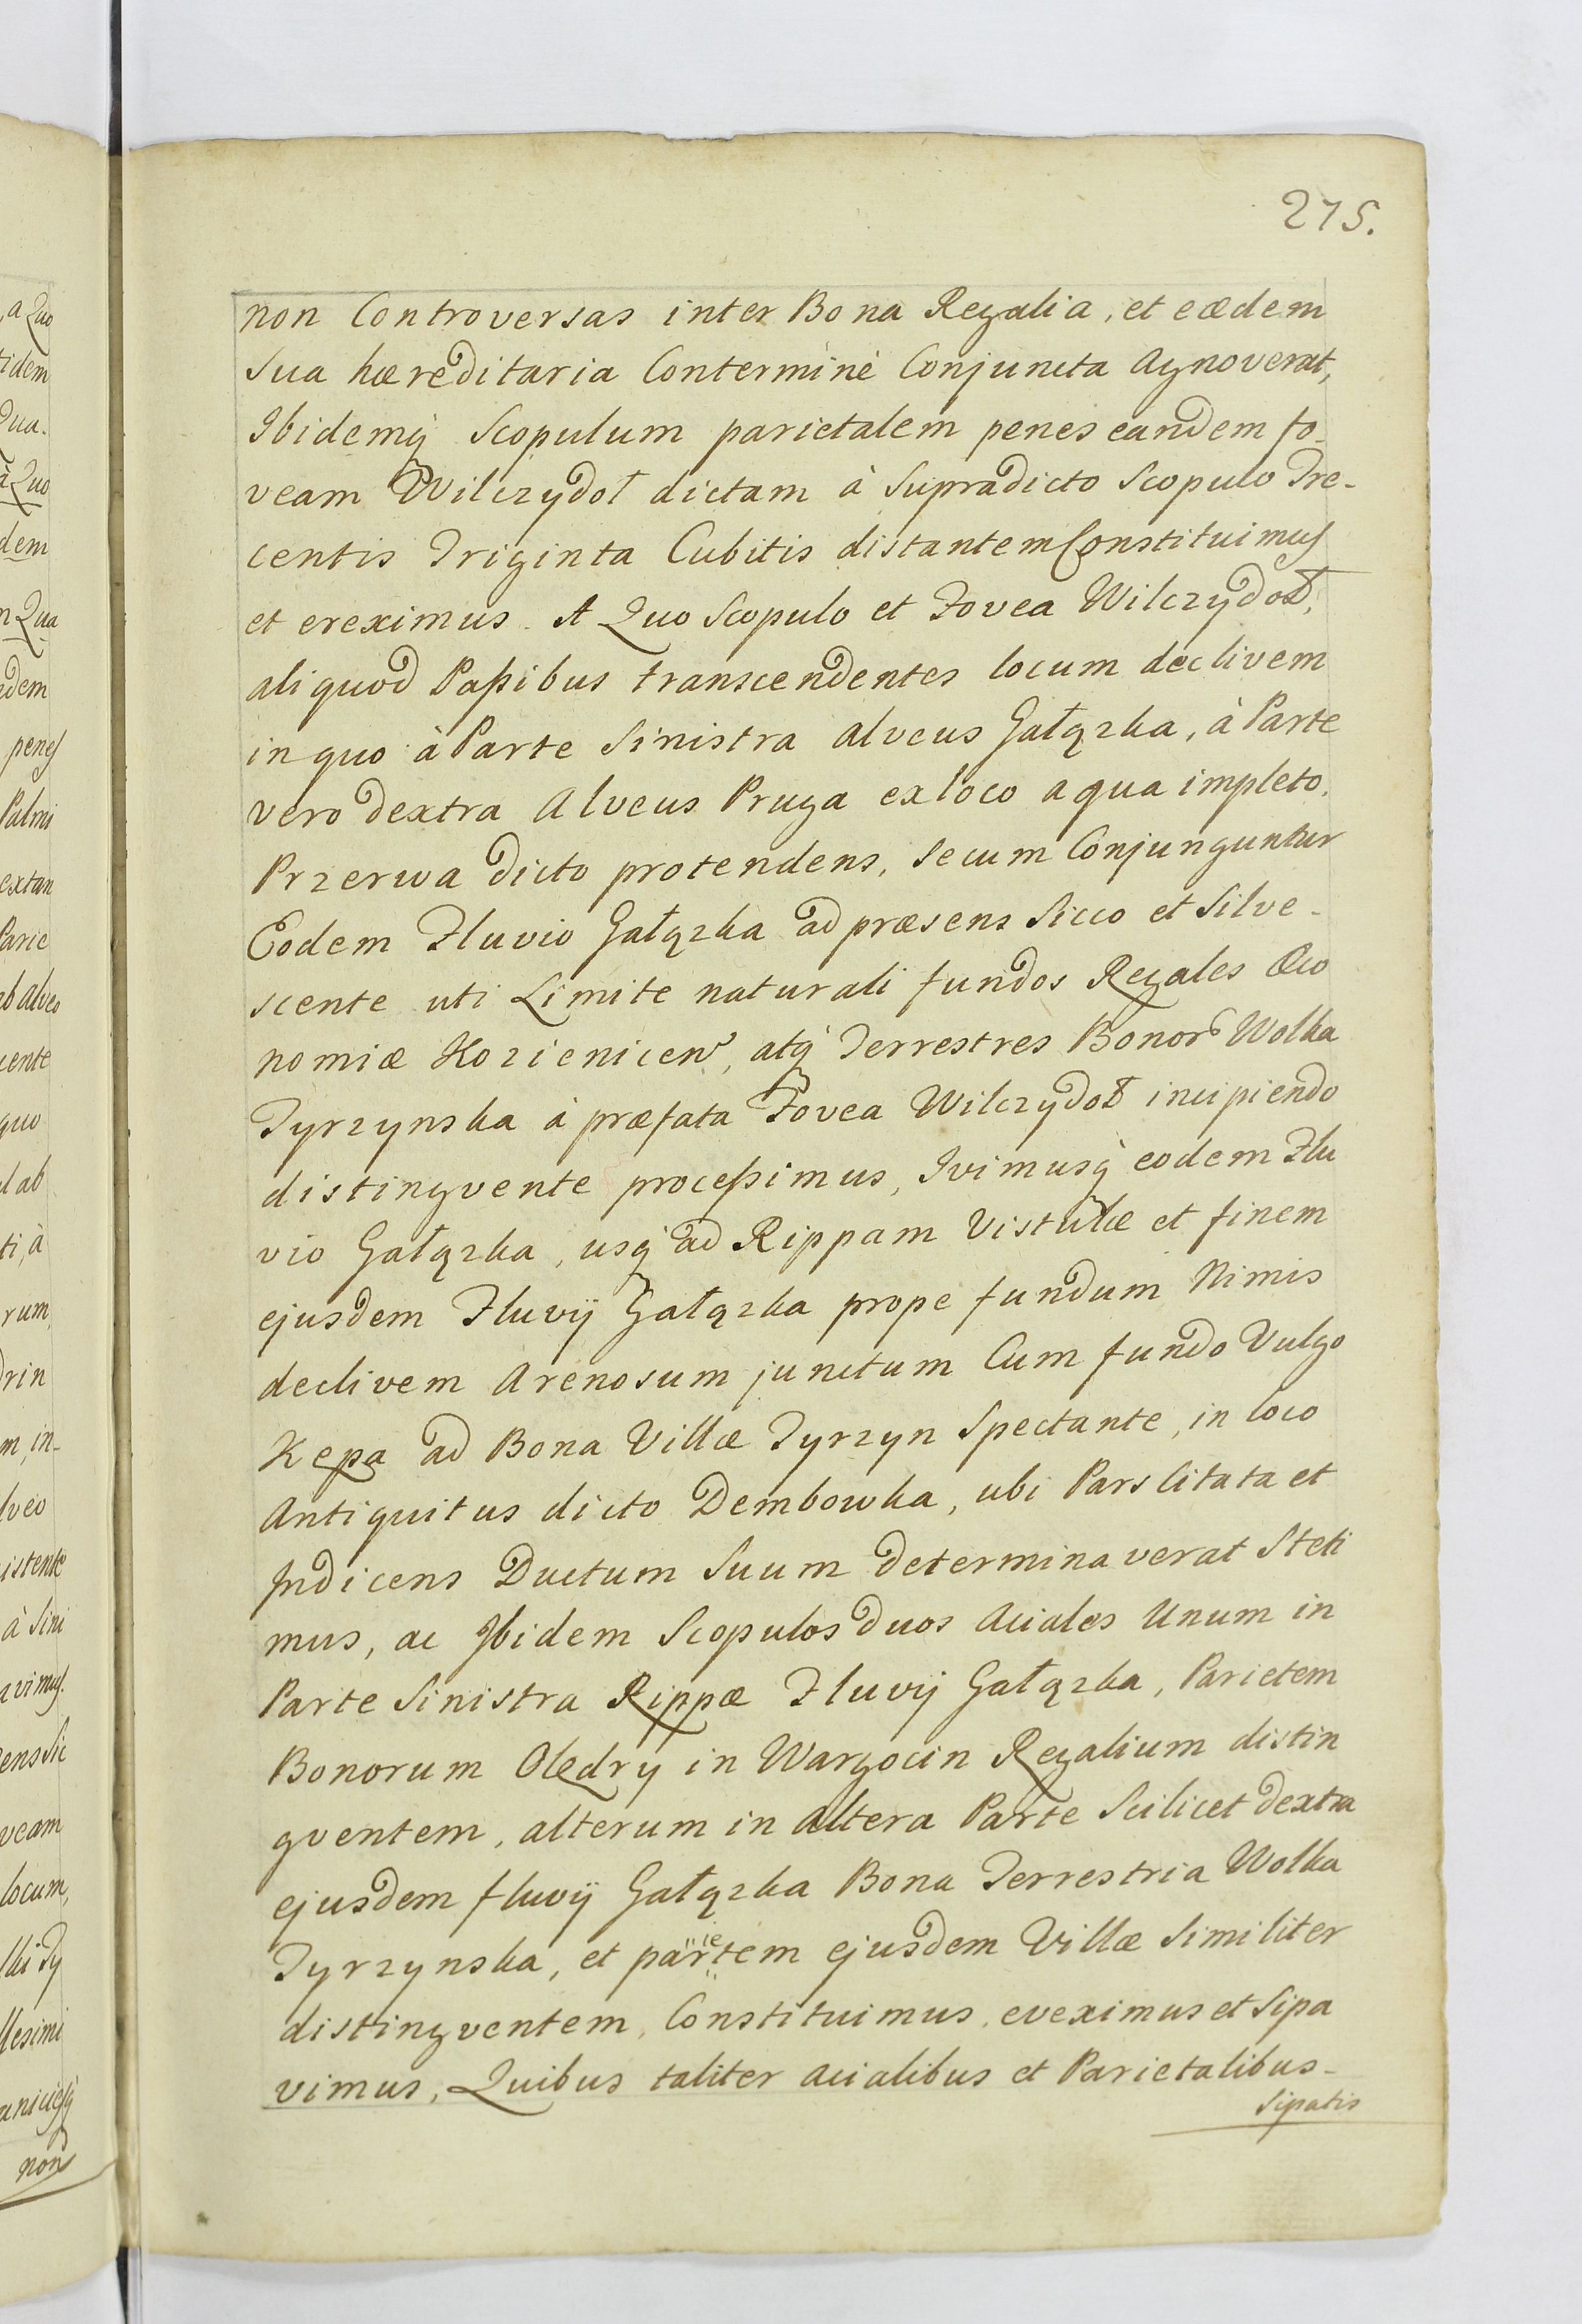 275.
non Controversas inter Bona Regalia, et eædem
sua hæreditaria Conterminè Conjuncta agnoverat,
Ibidemq̀ Scopulum parietalem penes eandem fo-
veam Wilczydoł dictam à supradicto Scopulo Tre-
centis Triginta Cubitis distantem Constituimus
et ereximus. A Quo Scopulo et Fovea Wilczydoł,
aliquod Passibus transcendentes locum declivem
in quo à Parte Sinistra alveus Gałązka, à Parte
vero dextra Alveus Pruga ex loco aqua impleto,
Przerwa dicto protendens, secum Conjunguntur
Eodem Fluvio Gałązka ad præsens Sicco et Silve-
scente uti Limite naturali fundos Regales Œco
nomiæ Kozienicen, atq̀ Terrestres Bonor Wolka
Tyrzynska à præfata Fovea Wilczydoł incipiendo
distingvente processimus, Ivimusq̀ eodem Flu
vio Gałązka, usq̀ ad Rippam Vistulæ et finem
ejusdem Fluvij Gałązka prope fundum Nimis
declivem Arenosum junctum Cum fundo Vulgo
Kępa ad Bona Villæ Tyrzyn Spectante, in loco
Antiquitus dicto Dembowka, ubi Pars Citata et
Indicens Ductum Suum determinaverat Steti
mus, ac Ibidem Scopulos duos Aciales Unum in
Parte Sinistra Rippæ Fluvij Gałązka, Parietem
Bonorum Olędry in Wargocin Regalium distin
gventem, alterum in altera Parte Scilicet dextra
ejusdem fluvij Gałązka Bona Terrestria Wolka
ie
Tyrzynska, et partem ejusdem Villæ Similiter
distingventem, Constituimus, eveximus et Sipa
vimus, Quibus taliter acialibus et Parietalibus-
Sipatis